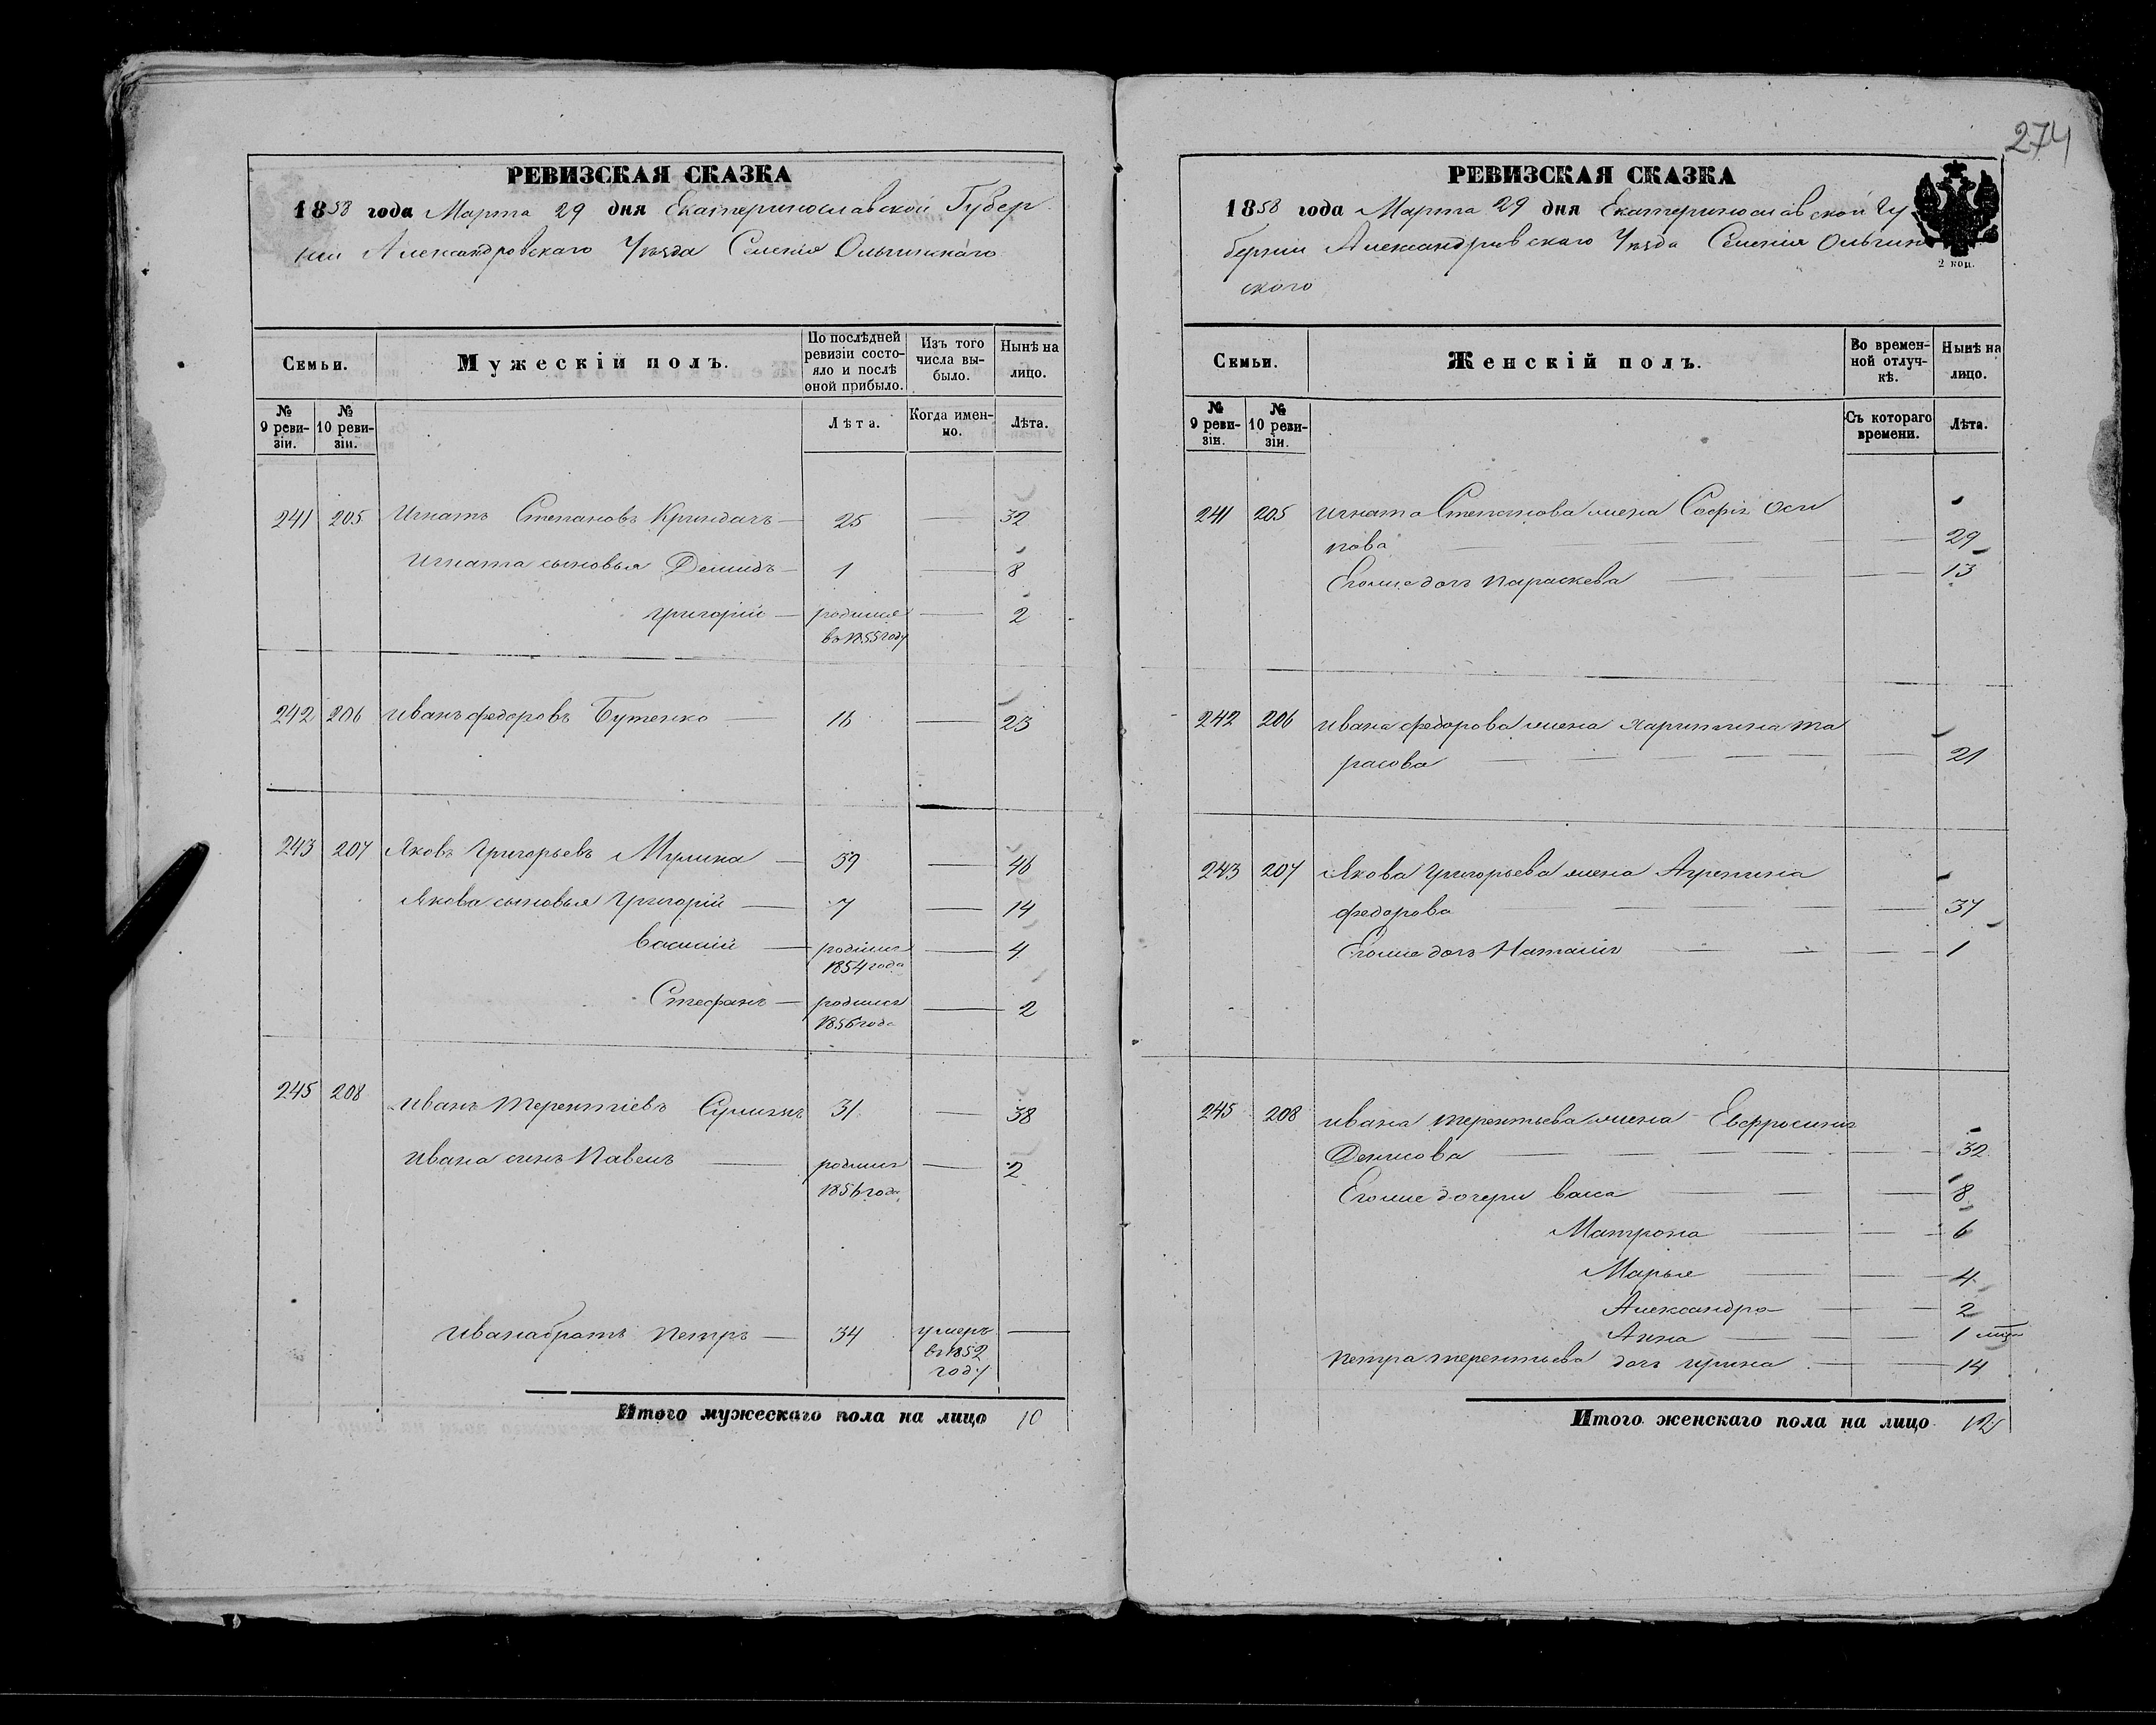 274
РЕВИЗСКАЯ СКАЗКА
1858 года Марта 29 дня Екатеринославской Губер
ніи Александровскаго Уѣзда Селенія Ольгинскаго
Семьи.
Мужескій полъ.
По послѣдней ревизіи состояло и послѣ оной прибыло.
Изъ того числа выбыло.
Нынѣ на лицо.
№ 9 ревизіи.
№ 10 ревизіи.
Лѣта.
Когда именно.
Лѣта.
241 205 Игнатъ Степановъ Криндачъ — 25 — 32
Игната сыновья Демидъ — 1 — 8
Григорій — родился — 2
въ 1855 году
242 206 Иванъ Федоровъ Бутенко — 16 — 23
243 207 Яковъ Григорьевъ — 39 — 46
Якова сыновья Григорій — 7 — 14
Василій — родился — 4
1854 года
Стефанъ — родился — 2
1856 года
245 208 Иванъ Терентіевъ 31 — 38
Ивана сынъ Павелъ — родился — 2
1856 года
Ивана братъ Петръ — 34 умеръ —
въ 1852
году
Итого мужескаго пола на лицо 10
РЕВИЗСКАЯ СКАЗКА
1858 года Марта 29 дня Екатеринославской Гу
берніи Александровскаго Уѣзда Селенія Ольгин
ского
2 коп.
Семьи.
Женскій полъ.
Во временной отлучкѣ.
Нынѣ на лицо.
№ 9 ревизіи.
№ 10 ревизіи.
Съ котораго времени.
Лѣта.
241 205 Игната Степанова жена Софія Оси
пова — 29
Егоже дочь Параскева — 13
242 206 Ивана Федорова жена Харитина Та
расова — 21
243 207 Якова Григорьева жена Агрепина
Федорова — 37
Егоже дочь Наталія — 1
245 208 Ивана Терентьева жена Евфросинія
Денисова — 32
Егоже дочери Васа — 8
Матрона — 6
Марья — 4
Александра — 2
Анна — 1
Петра Терентьева дочь Ирина — 14
Итого женскаго пола на лицо 12